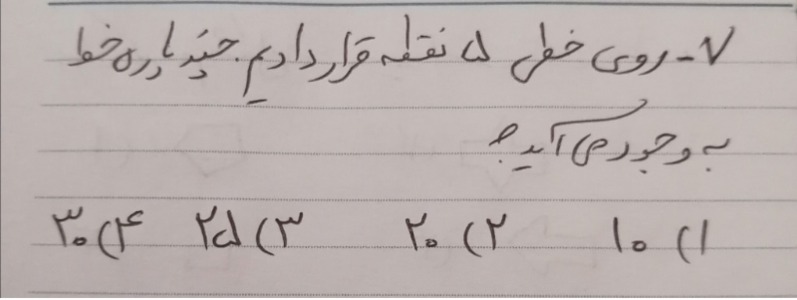 ۷- روی خطی ۵ نقطه قرار دادیم. چند پاره خط
به وجود می آید؟
۱) ۱۰ ۲) ۲۰ ۳) ۲۵ ۴) ۳۰